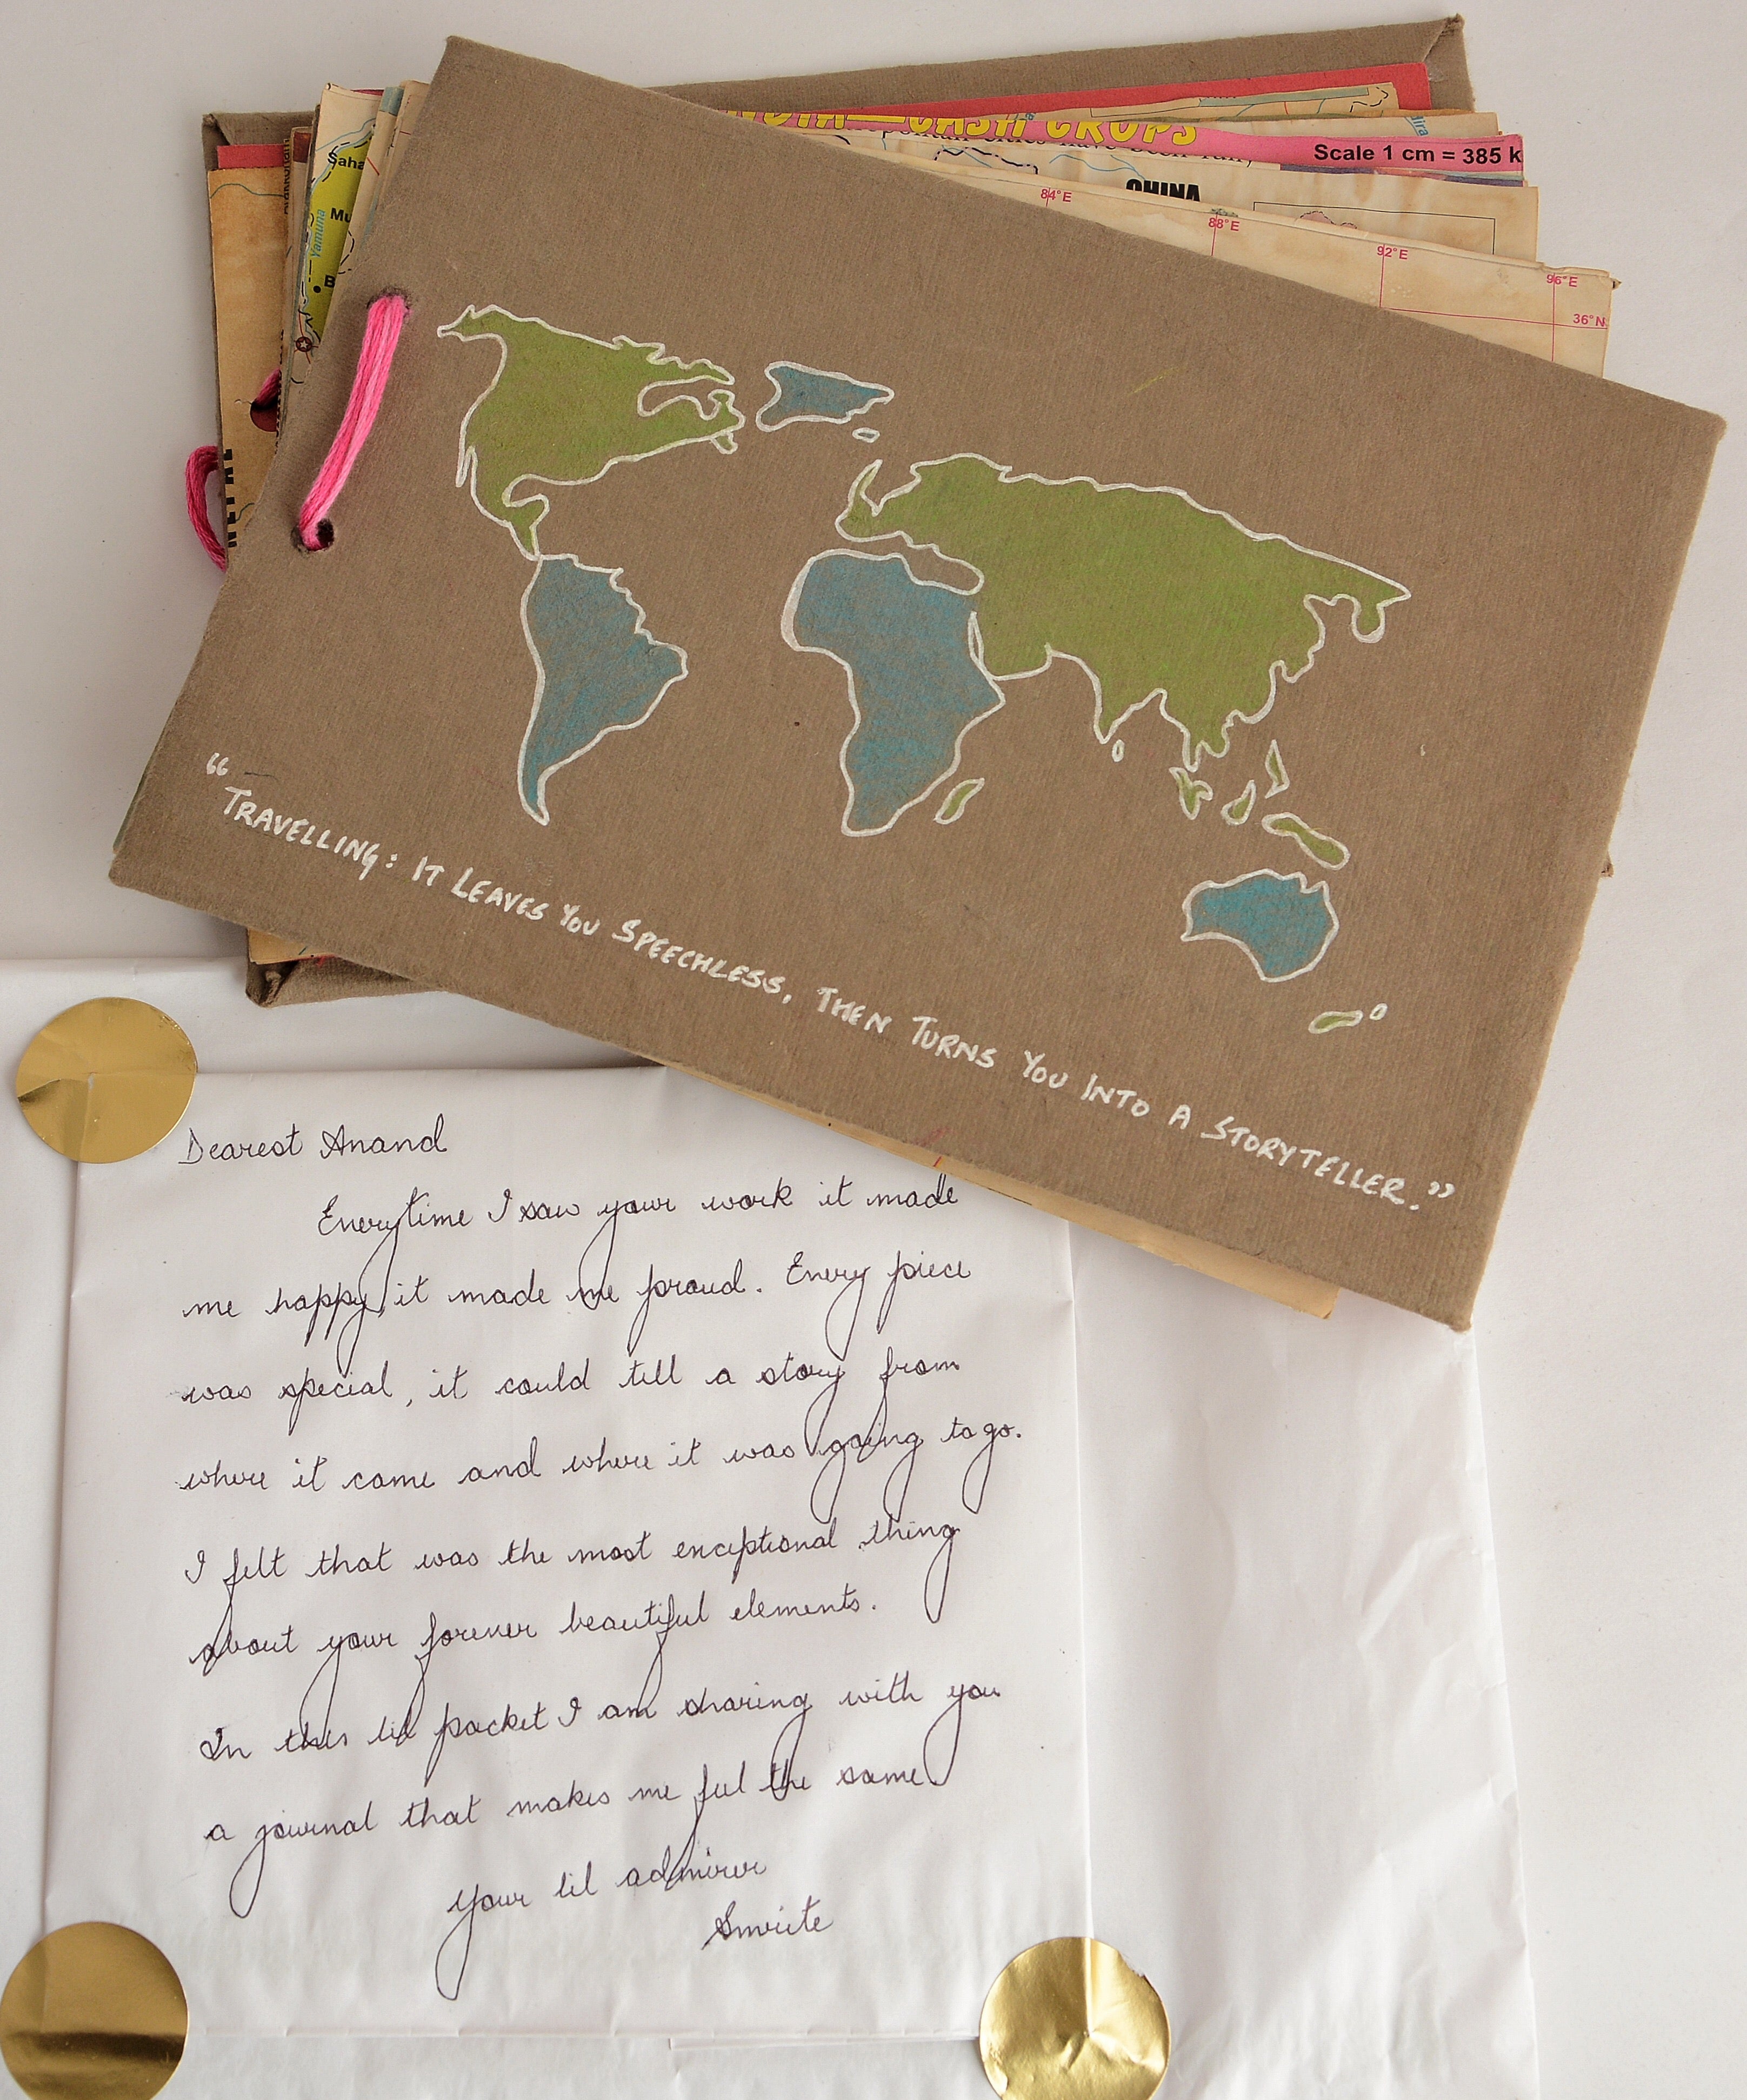 INDIA—CASH CROPS
Scale 1 cm = 385 k
CHINA
84°E
88°E
92°E
96°E
36°N
Saha
Mu
Yamuna
B
NEPAL
“TRAVELLING: IT LEAVES YOU SPEECHLESS, THEN TURNS YOU INTO A STORYTELLER.”
Dearest Anand
Everytime I saw your work it made
me happy, it made me proud. Every piece
was special, it could tell a story from
where it came and where it was going to go.
I felt that was the most exceptional thing
about your forever beautiful elements.
In this lil packet I am sharing with you
a journal that makes me feel the same.
Your lil admirer